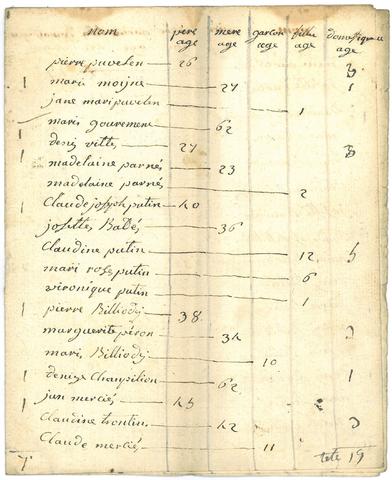 nom père age mere age garcon age fille age domestique age
pierre puvelin 26 3
marie moijne 27 1
jane mari puvelin 1
maris gouremene 62
denis vitte 27 3
madelaine parnés 23
madelaine parnés 2
Claude joseph putin 40
josette Babés 36
Claudine putin 12 5
mari rose putin 6
vironique putin 1
pierre Billiody 38
marguerite péron 34 3
maris Billiody 10
denize Chanpilion 62 1
jan merciés 45
Claudine trontin 42 3
Claude merciés 11
tete 19